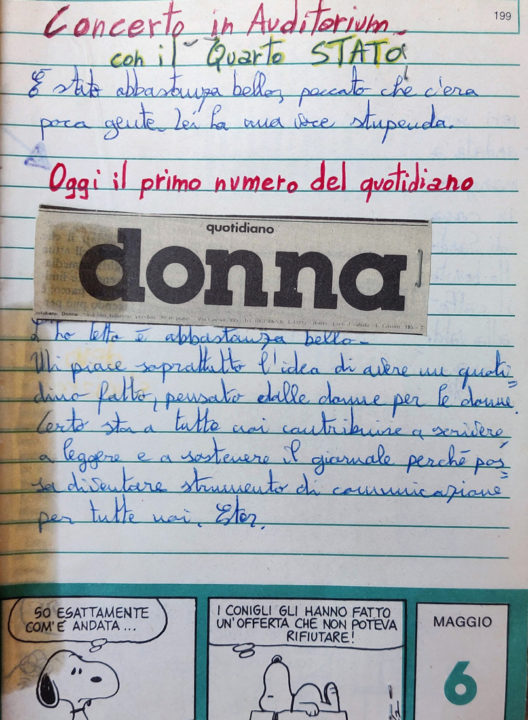 199
Concerto in Auditorium
con il Quarto STATO
È stato abbastanza bello, peccato che c'era
poca gente. Lei ha una voce stupenda.
Oggi il primo numero del quotidiano
quotidiano
donna
L'ho letto è abbastanza bello.
Mi piace soprattutto l'idea di avere un quoti=
diano fatto, pensato dalle donne per le donne.
Certo sta a tutte noi contribuire a scrivere,
a leggere e a sostenere il giornale perché pos=
sa diventare strumento di comunicazione
per tutte noi. Ester.
SO ESATTAMENTE
COM'È ANDATA...
I CONIGLI GLI HANNO FATTO
UN'OFFERTA CHE NON POTEVA
RIFIUTARE!
MAGGIO
6